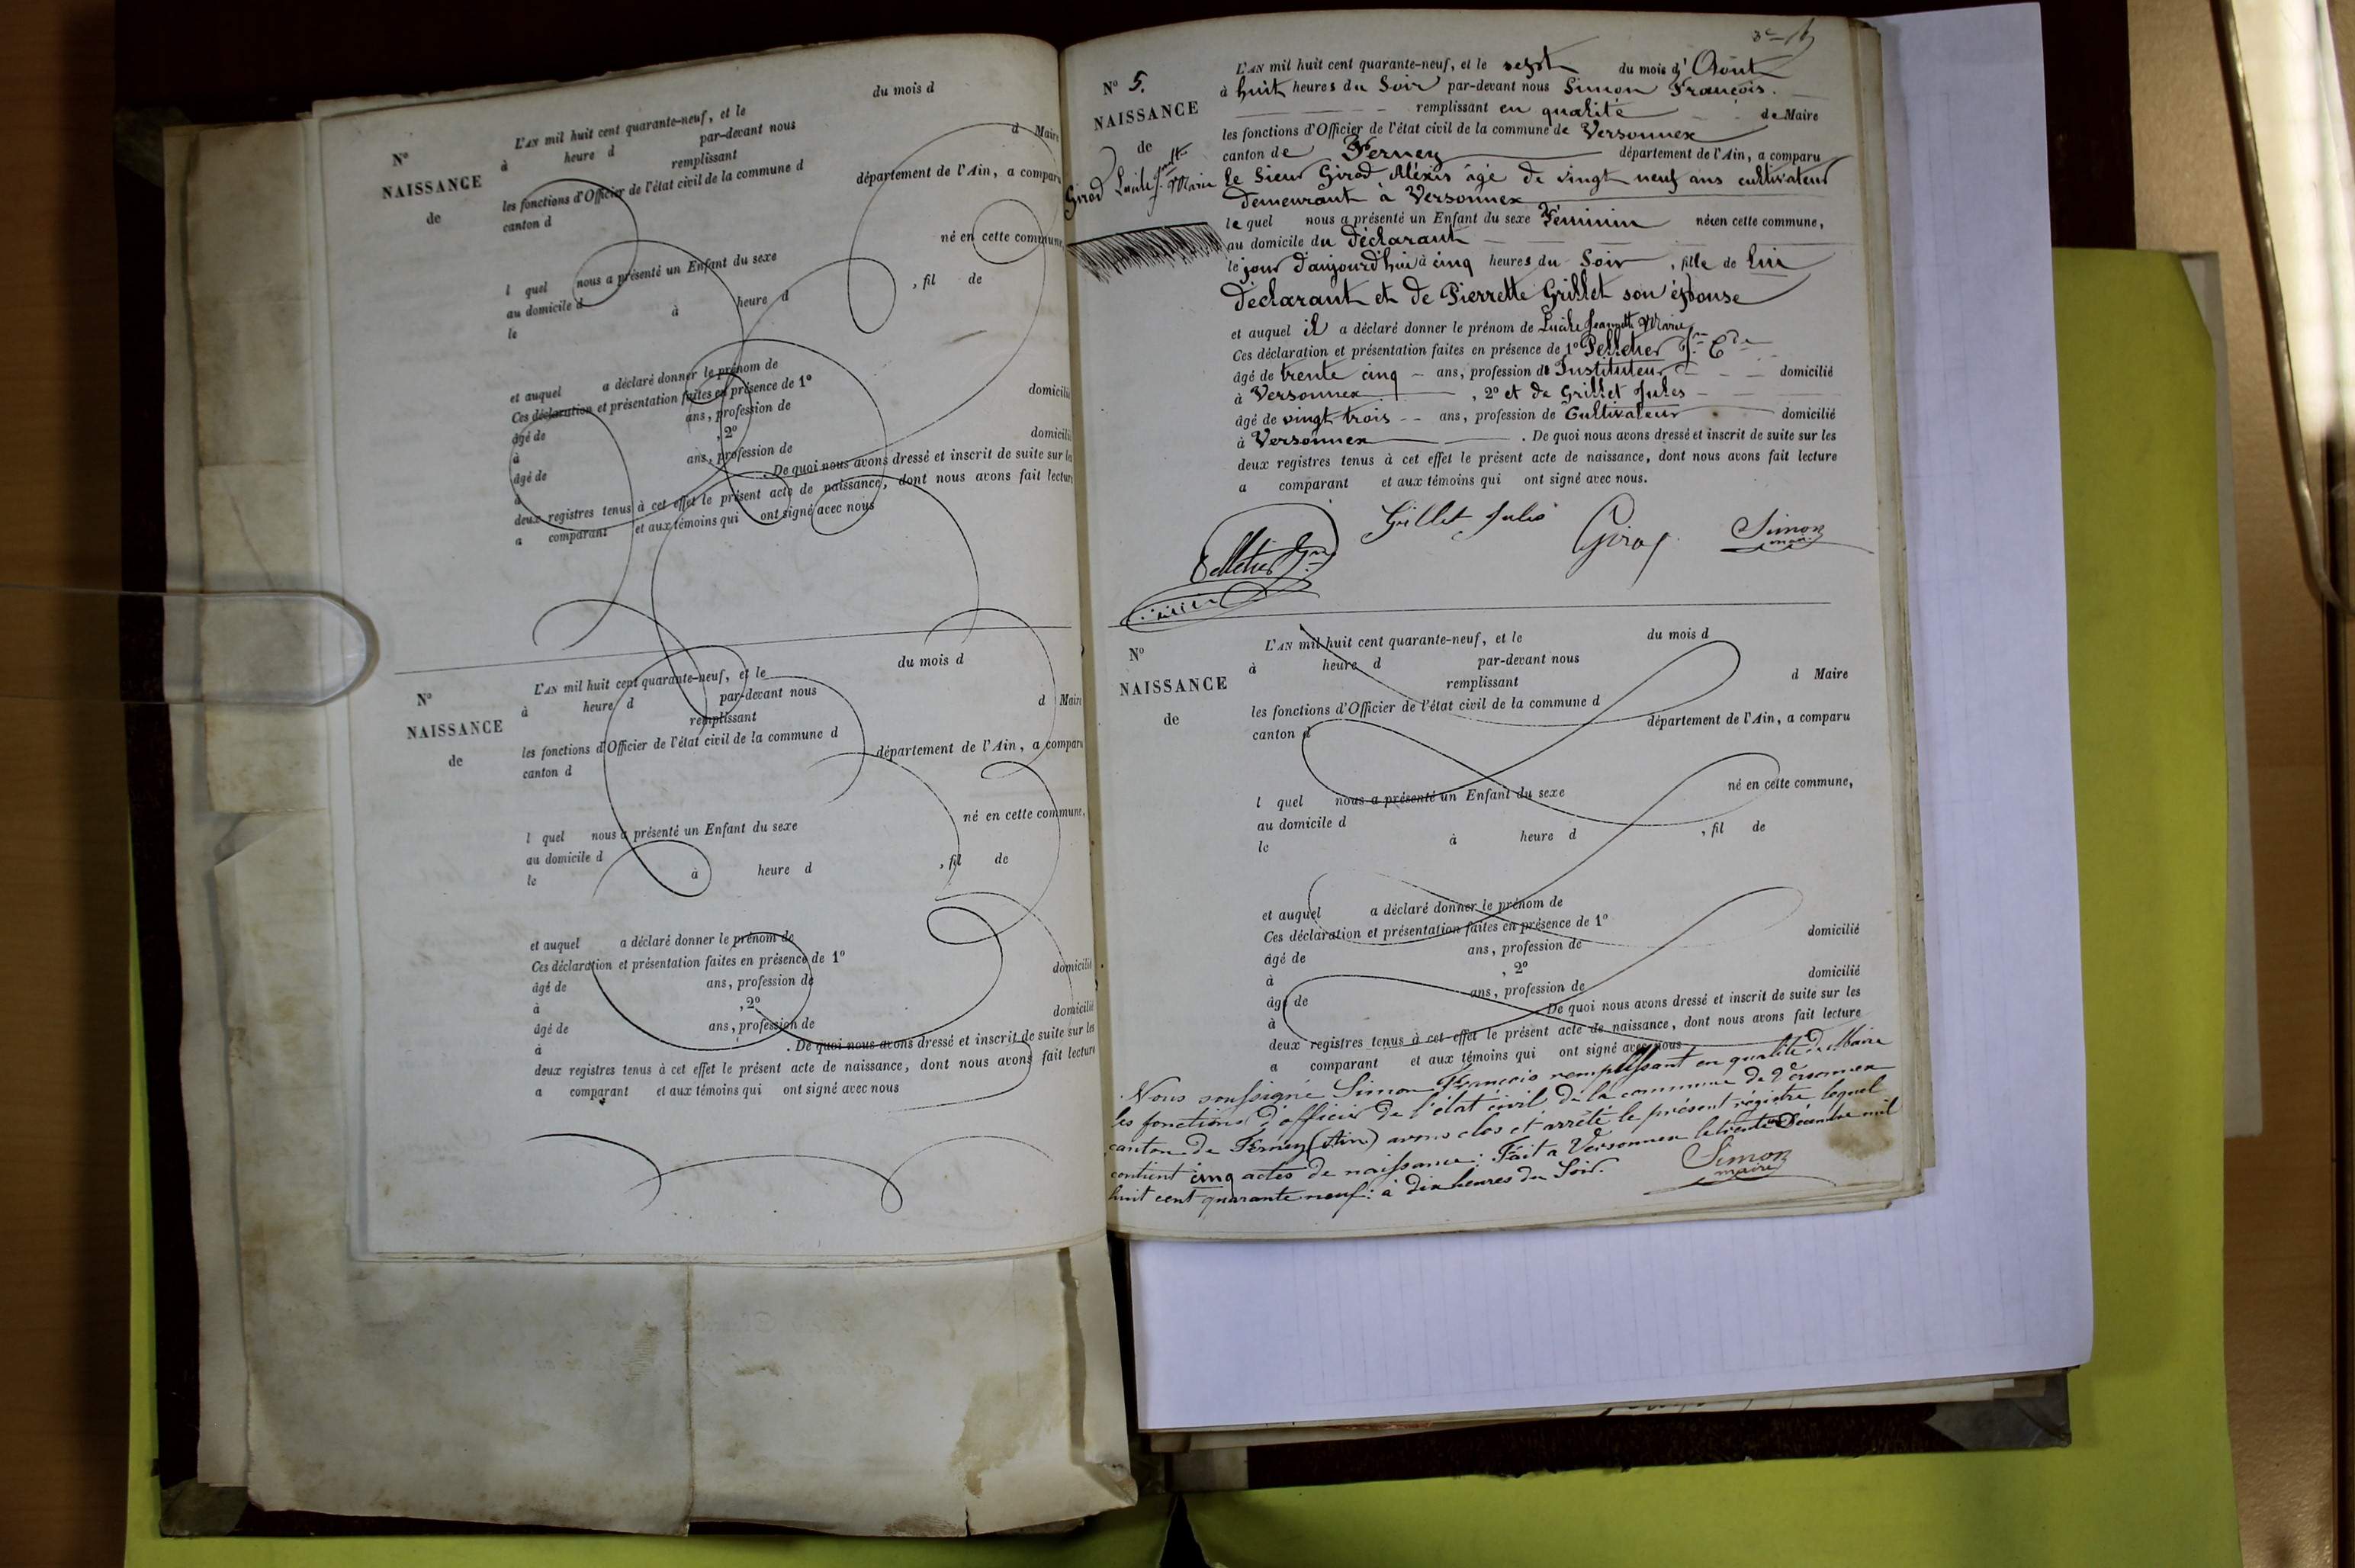 du mois d
L'AN mil huit cent quarante-neuf, et le
N° à heure d par-devant nous
d Maire
remplissant
NAISSANCE les fonctions d'Officier de l'état civil de la commune d
de canton d
département de l'Ain, a comparu
né en cette commune,
l quel nous a présenté un Enfant du sexe
au domicile d
le à heure d , fil de
et auquel a déclaré donner le prénom de
Ces déclaration et présentation faites en présence de 1°
âgé de ans, profession de domicilié
à , 2°
âgé de ans, profession de domicilié
à . De quoi nous avons dressé et inscrit de suite sur les
deux registres tenus à cet effet le présent acte de naissance, dont nous avons fait lecture
a comparant et aux témoins qui ont signé avec nous
L'AN mil huit cent quarante-neuf, et le du mois d
N° à heure d par-devant nous
remplissant d Maire
NAISSANCE les fonctions d'Officier de l'état civil de la commune d
de canton d département de l'Ain, a comparu
né en cette commune,
l quel nous a présenté un Enfant du sexe
au domicile d
le à heure d , fil de
et auquel a déclaré donner le prénom de
Ces déclaration et présentation faites en présence de 1°
âgé de ans, profession de domicilié
à , 2°
âgé de ans, profession de domicilié
à . De quoi nous avons dressé et inscrit de suite sur les
deux registres tenus à cet effet le présent acte de naissance, dont nous avons fait lecture
a comparant et aux témoins qui ont signé avec nous
L'AN mil huit cent quarante-neuf, et le sept du mois d'Août
N° 5. à huit heures du Soir par-devant nous Simon François.
NAISSANCE remplissant en qualité de Maire
les fonctions d'Officier de l'état civil de la commune de Versonnex
de canton de Ferney département de l'Ain, a comparu
Girod Lucile J.nette Marie le Sieur Girod Aléxis âgé de vingt neuf ans cultivateur
demeurant à Versonnex
le quel nous a présenté un Enfant du sexe Féminin né en cette commune,
au domicile du déclarant
le jour d'aujourd'hui à cinq heures du Soir , fille de lui
déclarant et de Pierrette Grillet son épouse
et auquel il a déclaré donner le prénom de Lucile Jeannette Marie
Ces déclaration et présentation faites en présence de 1° Pelletier
âgé de trente cinq ans, profession d'Instituteur domicilié
à Versonnex , 2° et de Grillet Jules
âgé de vingt trois ans, profession de Cultivateur domicilié
à Versonnex . De quoi nous avons dressé et inscrit de suite sur les
deux registres tenus à cet effet le présent acte de naissance, dont nous avons fait lecture
a comparant et aux témoins qui ont signé avec nous.
Pelletier Grillet Jules Girod Simon
maire
L'AN mil huit cent quarante-neuf, et le du mois d
N° à heure d par-devant nous
remplissant d Maire
NAISSANCE les fonctions d'Officier de l'état civil de la commune d
de canton d département de l'Ain, a comparu
l quel nous a présenté un Enfant du sexe né en cette commune,
au domicile d
le à heure d , fil de
et auquel a déclaré donner le prénom de
Ces déclaration et présentation faites en présence de 1°
âgé de ans, profession de domicilié
à , 2°
âgé de ans, profession de domicilié
à De quoi nous avons dressé et inscrit de suite sur les
deux registres tenus à cet effet le présent acte de naissance, dont nous avons fait lecture
a comparant et aux témoins qui ont signé avec nous
Nous soussigné Simon François remplissant en qualité de Maire
les fonctions d'officier de l'état civil de la commune de Versonnex
canton de Ferney (Ain) avons clos et arrêté le présent régistre lequel
contient cinq actes de naissance. Fait à Versonnex le trente un Décembre mil
huit cent quarante neuf: à dix heures du Soir.
Simon
maire